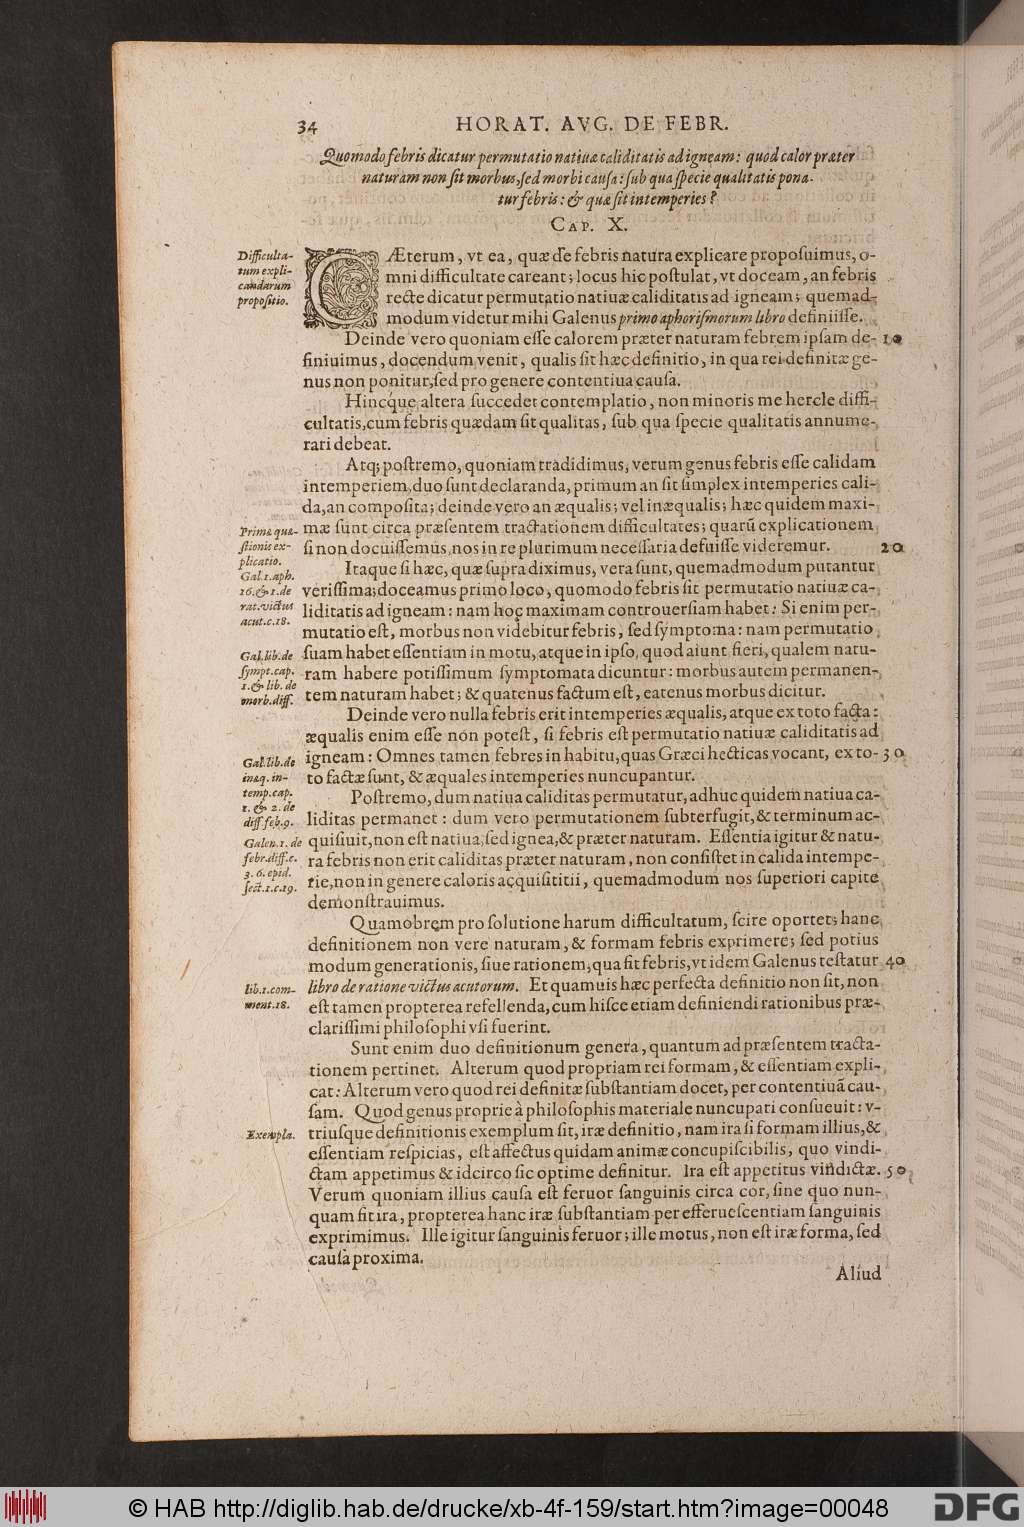 34 HORAT. AVG. DE FEBR.
Quomodo febris dicatur permutatio natiuæ caliditatis ad igneam: quod calor præter
naturam non sit morbus, sed morbi causa: sub qua specie qualitatis pona-
tur febris: & quæ sit intemperies?
CAP. X.
Difficulta-
tum expli-
candarum
propositio.
CÆterum, vt ea, quæ de febris natura explicare proposuimus, o-
mni difficultate careant; locus hic postulat, vt doceam, an febris
recte dicatur permutatio natiuæ caliditatis ad igneam; quemad-
modum videtur mihi Galenus primo aphorismorum libro definiisse.
Deinde vero quoniam esse calorem præter naturam febrem ipsam de- 10
finiuimus, docendum venit, qualis sit hæc definitio, in qua rei definitæ ge-
nus non ponitur, sed pro genere contentiua causa.
Hincque altera succedet contemplatio, non minoris me hercle diffi-
cultatis, cum febris quædam sit qualitas, sub qua specie qualitatis annume-
rari debeat.
Atq; postremo, quoniam tradidimus, verum genus febris esse calidam
intemperiem, duo sunt declaranda, primum an sit simplex intemperies cali-
da, an composita; deinde vero an æqualis; vel inæqualis; hæc quidem maxi-
mæ sunt circa præsentem tractationem difficultates; quarū explicationem
si non docuissemus, nos in re plurimum necessaria defuisse videremur. 20
Prima quæ-
stionis ex-
plicatio.
Gal. 1. aph.
16. & 1. de
rat. victus
acut. c. 18.
Itaque si hæc, quæ supra diximus, vera sunt, quemadmodum putantur
verissima; doceamus primo loco, quomodo febris sit permutatio natiuæ ca-
liditatis ad igneam: nam hoc maximam controuersiam habet: Si enim per-
mutatio est, morbus non videbitur febris, sed symptoma: nam permutatio
Gal. lib. de
sympt. cap.
1. & lib. de
morb. diff.
suam habet essentiam in motu, atque in ipso, quod aiunt fieri, qualem natu-
ram habere potissimum symptomata dicuntur: morbus autem permanen-
tem naturam habet; & quatenus factum est, eatenus morbus dicitur.
Deinde vero nulla febris erit intemperies æqualis, atque ex toto facta:
æqualis enim esse non potest, si febris est permutatio natiuæ caliditatis ad
igneam: Omnes tamen febres in habitu, quas Græci hecticas vocant, ex to- 30
to factæ sunt, & æquales intemperies nuncupantur.
Gal. lib. de
inæq. in-
temp. cap.
1. & 2. de
diff. feb. 9.
Galen. 1. de
febr. diff. c.
3. 6. epid.
sect. 1. c. 19.
Postremo, dum natiua caliditas permutatur, adhuc quidem natiua ca-
liditas permanet: dum vero permutationem subterfugit, & terminum ac-
quisiuit, non est natiua, sed ignea, & præter naturam. Essentia igitur & natu-
ra febris non erit caliditas præter naturam, non consistet in calida intempe-
rie, non in genere caloris acquisititii, quemadmodum nos superiori capite
demonstrauimus.
Quamobrem pro solutione harum difficultatum, scire oportet; hanc
definitionem non vere naturam, & formam febris exprimere; sed potius
modum generationis, siue rationem, qua fit febris, vt idem Galenus testatur 40
lib. 1. com-
ment. 18.
libro de ratione victus acutorum. Et quamuis hæc perfecta definitio non sit, non
est tamen propterea refellenda, cum hisce etiam definiendi rationibus præ-
clarissimi philosophi vsi fuerint.
Sunt enim duo definitionum genera, quantum ad præsentem tracta-
tionem pertinet. Alterum quod propriam rei formam, & essentiam expli-
cat: Alterum vero quod rei definitæ substantiam docet, per contentiuā cau-
sam. Quod genus proprie à philosophis materiale nuncupari consueuit: v-
Exempla.
triusque definitionis exemplum sit, iræ definitio, nam ira si formam illius, &
essentiam respicias, est affectus quidam animæ concupiscibilis, quo vindi-
ctam appetimus & idcirco sic optime definitur. Ira est appetitus vindictæ. 50
Verum quoniam illius causa est feruor sanguinis circa cor, sine quo nun-
quam fit ira, propterea hanc iræ substantiam per efferuescentiam sanguinis
exprimimus. Ille igitur sanguinis feruor; ille motus, non est iræ forma, sed
causa proxima.
Aliud
© HAB http://diglib.hab.de/drucke/xb-4f-159/start.htm?image=00048
DFG